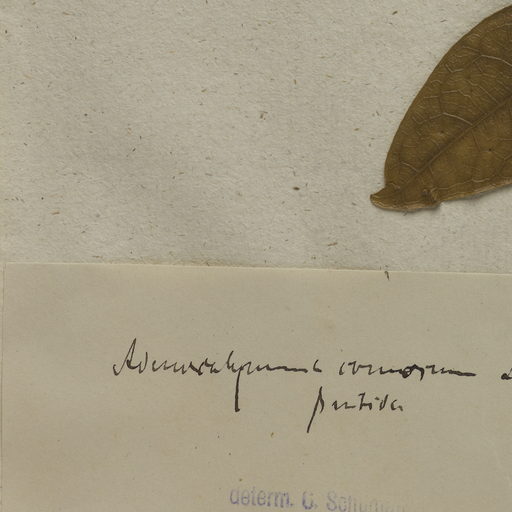 Adenocalymma comosum
determ. C. Schum